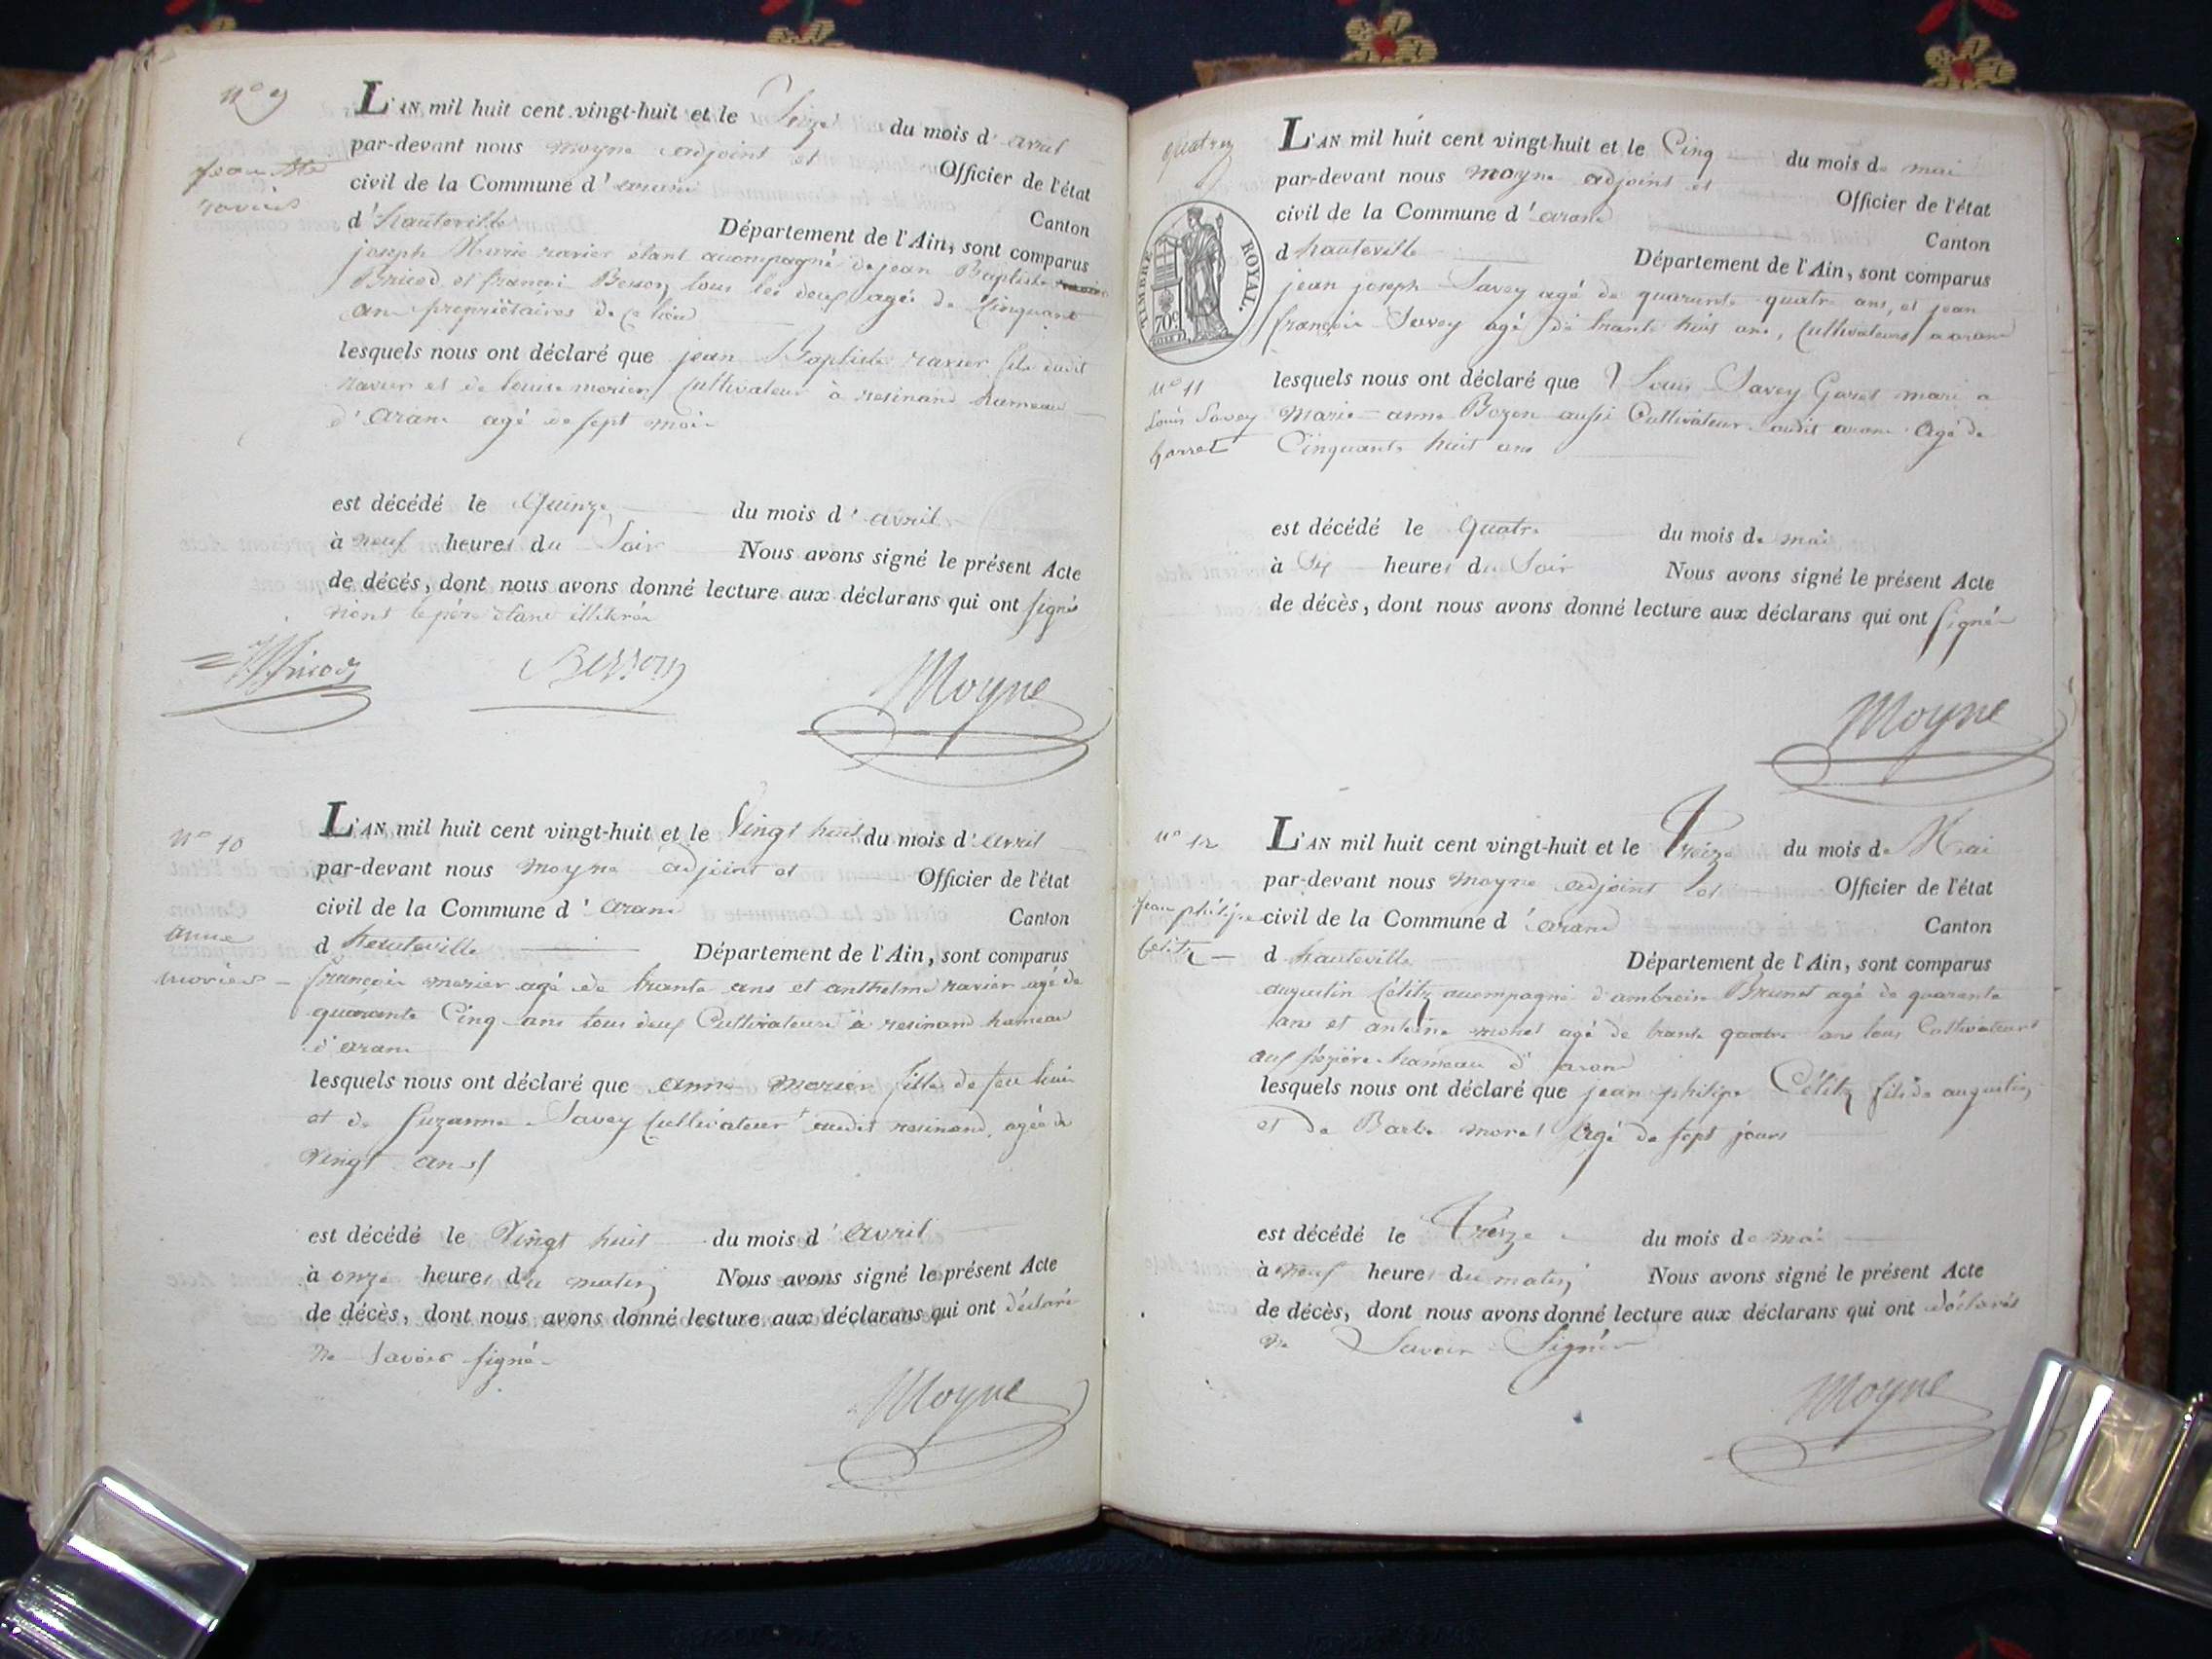 N° 9
L'AN mil huit cent vingt-huit et le Seize du mois d'avril
par-devant nous moyne adjoint et Officier de l'état
Jean Bte
ravier
civil de la Commune d'aranc Canton
d'hauteville Département de l'Ain, sont comparus
joseph Marie ravier étant acompagné de jean Baptiste
Bricod et françoi Besson tous les deux agés de Cinquante
ans propriétaires de ce lieu
lesquels nous ont déclaré que jean Baptiste ravier fils dudit
ravier et de louise morier Cultivateur à resinand hameau
d'aranc agé de sept mois
est décédé le Quinze du mois d'avril
à neuf heures du Soir Nous avons signé le présent Acte
de décés, dont nous avons donné lecture aux déclarans qui ont signés
non le père étant illitéré
Bricod Besson Moyne
N° 10
L'AN mil huit cent vingt-huit et le Vingt huit du mois d'avril
par-devant nous moyne adjoint et Officier de l'état
civil de la Commune d'aranc Canton
anne
morier
d hauteville Département de l'Ain, sont comparus
françois morier agé de trante ans et anthelme ravier agé de
quarante Cinq ans tous deux Cultivateurs à resinand hameau
d'aranc
lesquels nous ont déclaré que anne morier fille de feu
et de Suzanne Savey Cultivateur audit resinand, agée de
vingt ans
est décédé le Vingt huit du mois d'avril
à onze heures du matin Nous avons signé le présent Acte
de décès, dont nous avons donné lecture aux déclarans qui ont déclaré
ne Savoir signé
Moyne
quatre
L'AN mil huit cent vingt-huit et le Cinq du mois de mai
par-devant nous moyne adjoint et Officier de l'état
civil de la Commune d'aranc Canton
d hauteville Département de l'Ain, sont comparus
TIMBRE ROYAL.
70c
jean joseph Savey agé de quarante quatre ans, et jean
françois Savey agé de trante huit ans, Cultivateurs a aranc
N° 11
Louis Savey
Garret
lesquels nous ont déclaré que Louis Savey Garet mari a
Marie-anne Bozon aussi Cultivateur audit aranc Agé de
Cinquante huit ans
est décédé le Quatre du mois de mai
à Six heures du Soir Nous avons signé le présent Acte
de décès, dont nous avons donné lecture aux déclarans qui ont Signé
Moyne
N° 12
L'AN mil huit cent vingt-huit et le Treize du mois de Mai
par-devant nous moyne adjoint et Officier de l'état
jean philipe
Célitz
civil de la Commune d'aranc Canton
d hauteville Département de l'Ain, sont comparus
augustin Célitz acompagné d'ambroise Brunet agé de quarante
ans et antoine morel agé de trante quatre ans tous Cultivateurs
hameau d'aranc
lesquels nous ont déclaré que jean philipe Célitz fils de augustin
et de Barbe morel Agé de sept jours
est décédé le Treize du mois de mai
à neuf heures du matin Nous avons signé le présent Acte
de décès, dont nous avons donné lecture aux déclarans qui ont déclarés
ne Savoir Signer
Moyne